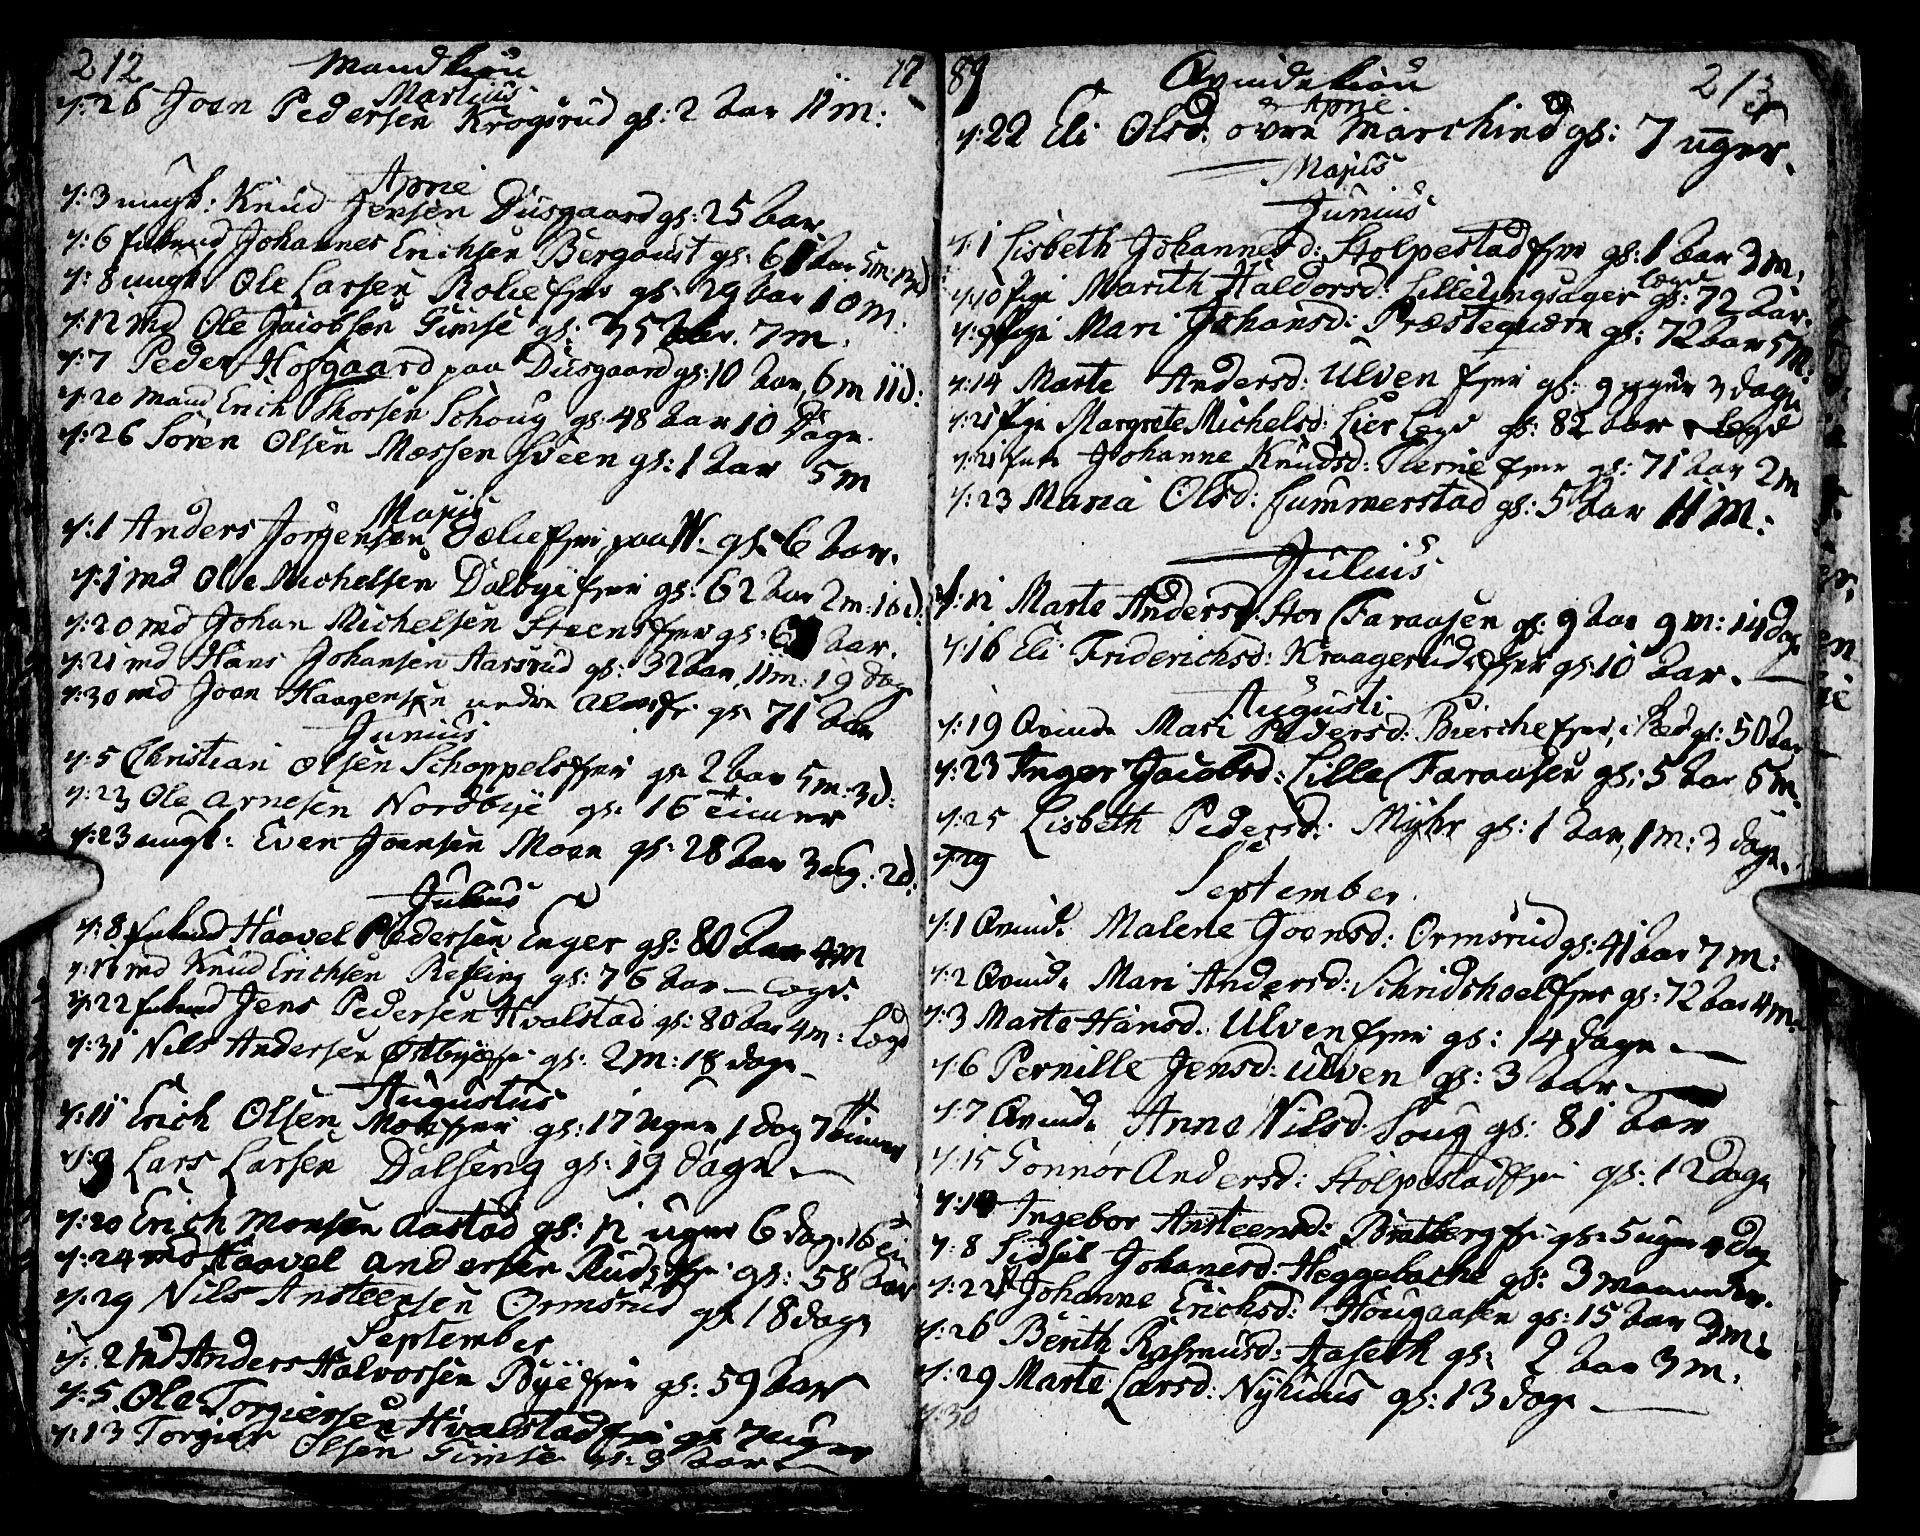 212 Mandkiön 17
Martius
d: 26 Joen Pedersen Krogsrud gl: 2 aar 11 m:
April
d: 3 ungk: Knud Jensen Dusgaard gl: 25 aar.
d: 6 Johannes Erichsen Bergqust gl: 6 aar 5m:
d: 8 ungk Ole Larsen Rolie eier gl: 29 aar 10 m:
d: 12 md Ole Jacobsen Gimse gl: 35 aar 7m.
d: 7 Peder Hofgaard paa Dusgaard gl: 10 aar, 6 m 11d:
d: 20 mand Erich Thorsen Schoug gl: 48 aar 10 Dage.
d: 26 Sören Olsen Mæssen Sveen gl: 1 aar 5m
Majus
d: 1 Anders Jörgensen Dælie eier paa W. gl: 6 aar.
d: 1 md Ole Michelsen Dalbye eier gl: 62 aar 2m: 16d:
d: 20 md Johan Michelsen Steens eier gl: 6 aar.
d: 21 md Hans Johansen Aarsrud gl: 32 aar, 11m: 19 dag
d: 30 md Joen Haagensen nedre gl: 71 aar
Junius
d: 5 Christian Olsen Schoppels eier gl: 2 aar 5m: 3d:
d: 23 Ole Arnesen Nordbye gl: 16 timer
d: 23 ungk: Even Joensen Moen gl: 28 aar 3 ug: 2d:
Julius
d: 8 Haavel Pedersen Enger gl: 80 aar 4m
d: 18 md Knud Erichsen Refling gl: 76 aar — Legd.
d: 22 Jens Pedersen Hvalstad gl: 80 aar 4m: Legd
d: 31 Nils Andersen Ostbye gl: 2m: 18 dage
Augustus
d: 11 Erich Olsen Moe eier gl: 17 Uger 1 dag 7 timer
d: 9 Lars Larsen Dalseng gl: 19 dage —
d: 20 Erich Monsen Aastad gl: 12 uger 6 dag: 16 ti
d: 24 md Haavel Andersen Ruds gl: 58 aar
d: 29 Nils Ansteensen Ormsrud gl: 18 dage
September
d: 2 md Anders Halvorsen Bye eier gl: 59 aar
d: 5 Ole Torgiersen Hvalstad eier gl: 7 uger
d: 13 Torgier Olsen Gimse gl: 3 aar —
89 Qvindekiön 213
April.
d: 22 Eli Olsd: ovre Marchind gl: 7 uger.
Majus
Junius
d: 1 Lisbeth Johannesd: Stolpestad eier gl: 1 aar 3 m:
d: 10 pige Marith Haldorsd: Lillelingsager Legd gl: 72 aar.
d: 9 pige Mari Johansd: Præstequern gl: 72 aar 5m:
d: 14 Marte Andersd: Ulven eier gl: 9 uger 3 dage
d: 21 pige Margrete Michelsd: Lier Legd gl: 82 aar Legd
d: 21 Johanne Knudsd: eier gl: 71 aar 2m
d: 23 Maria Olsd: Lummerstad gl: 5 aar 11m:
Julius
d: 12 Marte Andersd: Stor Faraasen gl: 9 aar 9 m: 14 dag
d: 16 Eli Friderichsd: Kraagerud eier gl: 10 aar. —
Augusti
d: 19 Qvinde Mari Pedersd: Bierche eier, gl: 50 aar
d: 23 Inger Jacobsd: Lille Faraasen gl: 5 aar 6m.
d: 25 Lisbeth Pedersd: Myhr gl: 1 aar, 1m: 3 dage.
d: 29
September
d: 1 Qvinde Malene Joensd: Ormsrud gl: 41 aar 7m:
d: 2 Qvinde Mari Andersd: Schridshoel eier gl: 72 aar 4m.
d: 3 Marte Hansd. Ulven eier gl: 14 dage —
d: 6 Pernille Jensd: Ulven gl: 3 aar —
d: 7 Qvinde Anne Nilsd. Soug gl: 81 aar
d: 15 Gonnor Andersd: Stolpestad eier gl: 12 dage
d: 14 Ingebor Ansteensd: Bratberg gl: 5 uger 4 dag
d: 8 Sidsel Johanesd: Heggebache gl: 3 maaneder.
d: 22 Johanne Erichsd: Hougaasen gl: 15 aar 3m:
d: 26 Berith Rasmusd: Aaseth gl: 2 aar 3 m.
d: 29 Marte Larsd: Nyhuus gl: 13 dage —
d: 30